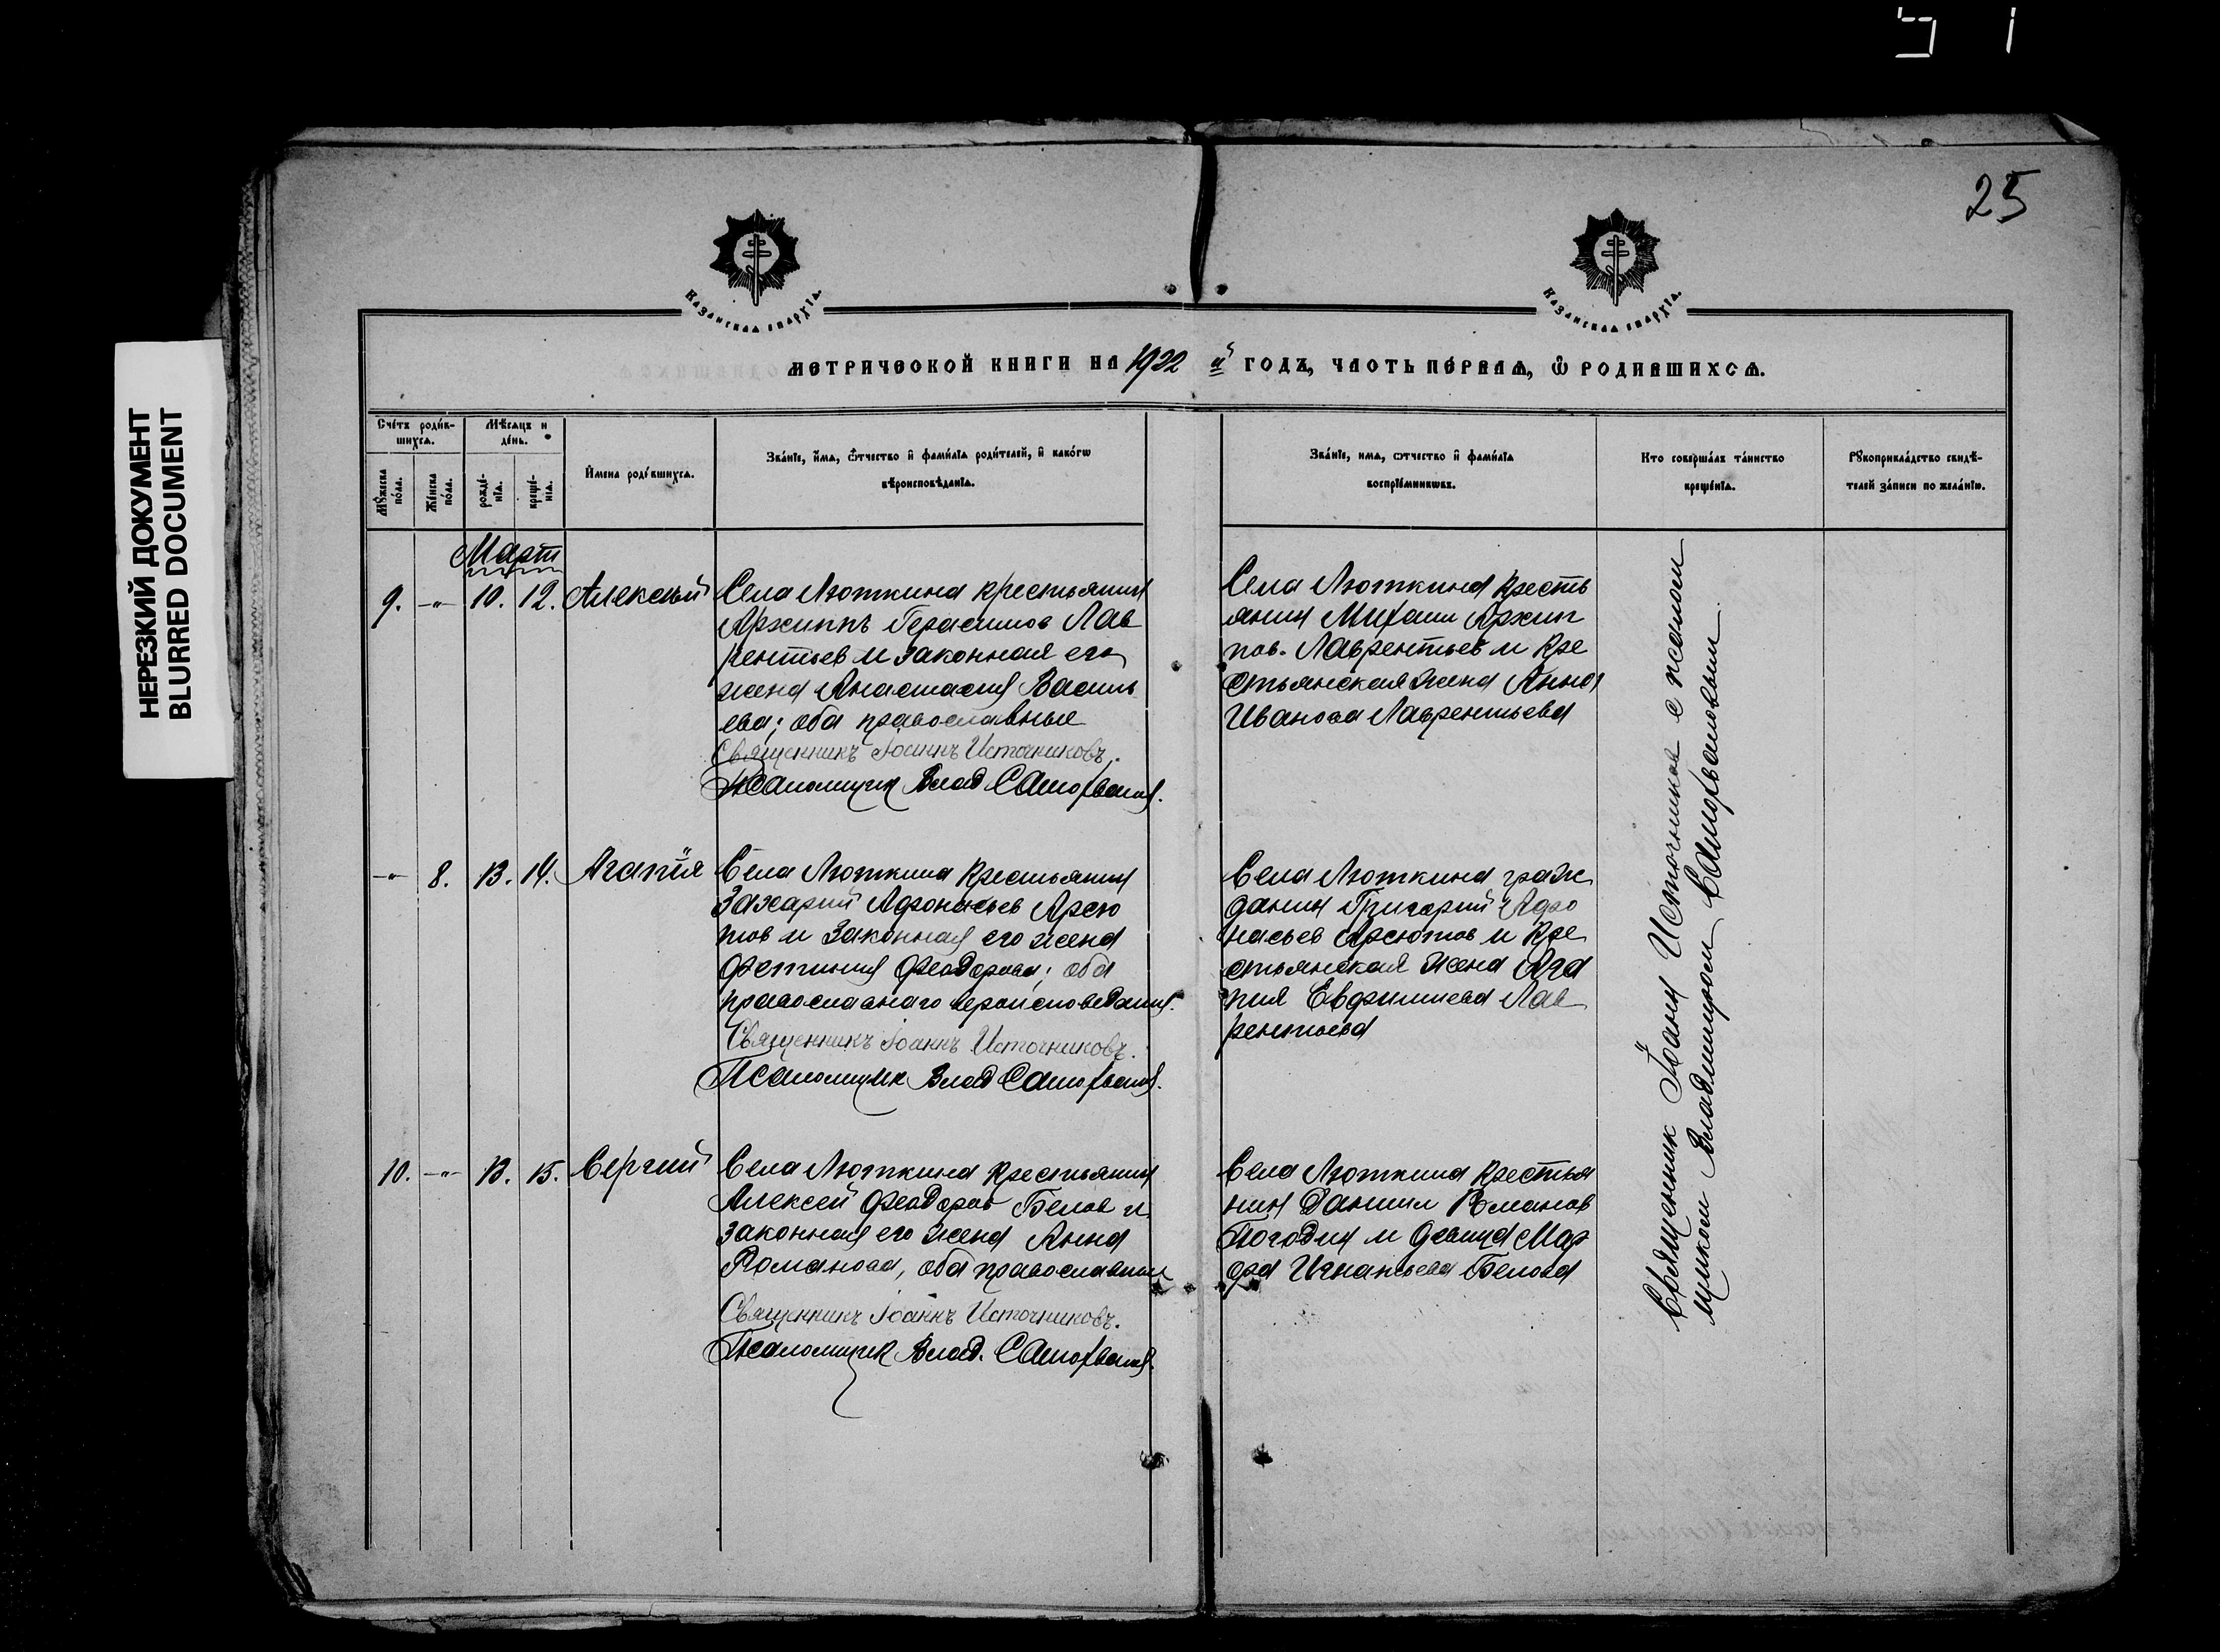 25
НЕРЕЗКИЙ ДОКУМЕНТ
BLURRED DOCUMENT
КАЗАНСКАЯ ЕПАРХІА.
КАЗАНСКАЯ ЕПАРХІА.
МЕТРИЧЕСКОЙ КНИГИ НА 1922 й ГОДЪ, ЧАСТЬ ПЕРВАѦ, Ѽ РОДИВШИХСѦ.
Счетъ родив-
шихся.
Мѣсяцъ и
день.
Мужеска
пола.
Женска
пола.
рожде-
нїя.
креще-
нїя.
Имена родившихся.
Званїе, имя, отчество и фамилїя родителей, и какогѡ
вѣроисповѣданїя.
Званїе, имя, отчество и фамилїя
воспрїемникѡвъ.
Кто совершалъ таинство
крещенїя.
Рукоприкладство свидѣ-
телей записи по желанїю.
Март
9. -"- 10. 12. Алексый
Села Люткина крестьянин
Архиппъ Герасимов Лав
рентьев и законная его
жена Анастасия Василь
ева; оба православные
Священникъ Іоаннъ Источниковъ.
Псаломщик Влад Самохвалов.
Села Люткина Кресть
янин Михаил Архип
пов. Лаврентьев и Кре
стьянская жена Анна
Иванова Лаврентьева
-"- 8. 13. 14. Агапїя
Села Люткина Крестьянин
Захарий Афонасьев Арсю
тов и Законная его жена
Фетиния Феодорова; оба
православнаго вероисповедания.
Священникъ Іоаннъ Источниковъ.
Псаломщик Влад Самохвалов.
Села Люткина граж
данин Григорий Афо
насьев Арсютов и Кре
стьянская жена Ага
пия Евфимиева Лав
рентьева
10. -"- 13. 15. Сергий
Села Люткина Крестьянин
Алексей Феодоров Белов и
законная его жена Анна
Романова, оба православные
Священникъ Іоаннъ Источниковъ.
Псаломщик Влад. Самохвалов.
Села Люткина Крестья
нин Даниил Романов
Погодин и девица Мар
фа Игнатьева Белова
Священник Їоанн Источников с псалом
щиком Владимиром Самохваловым